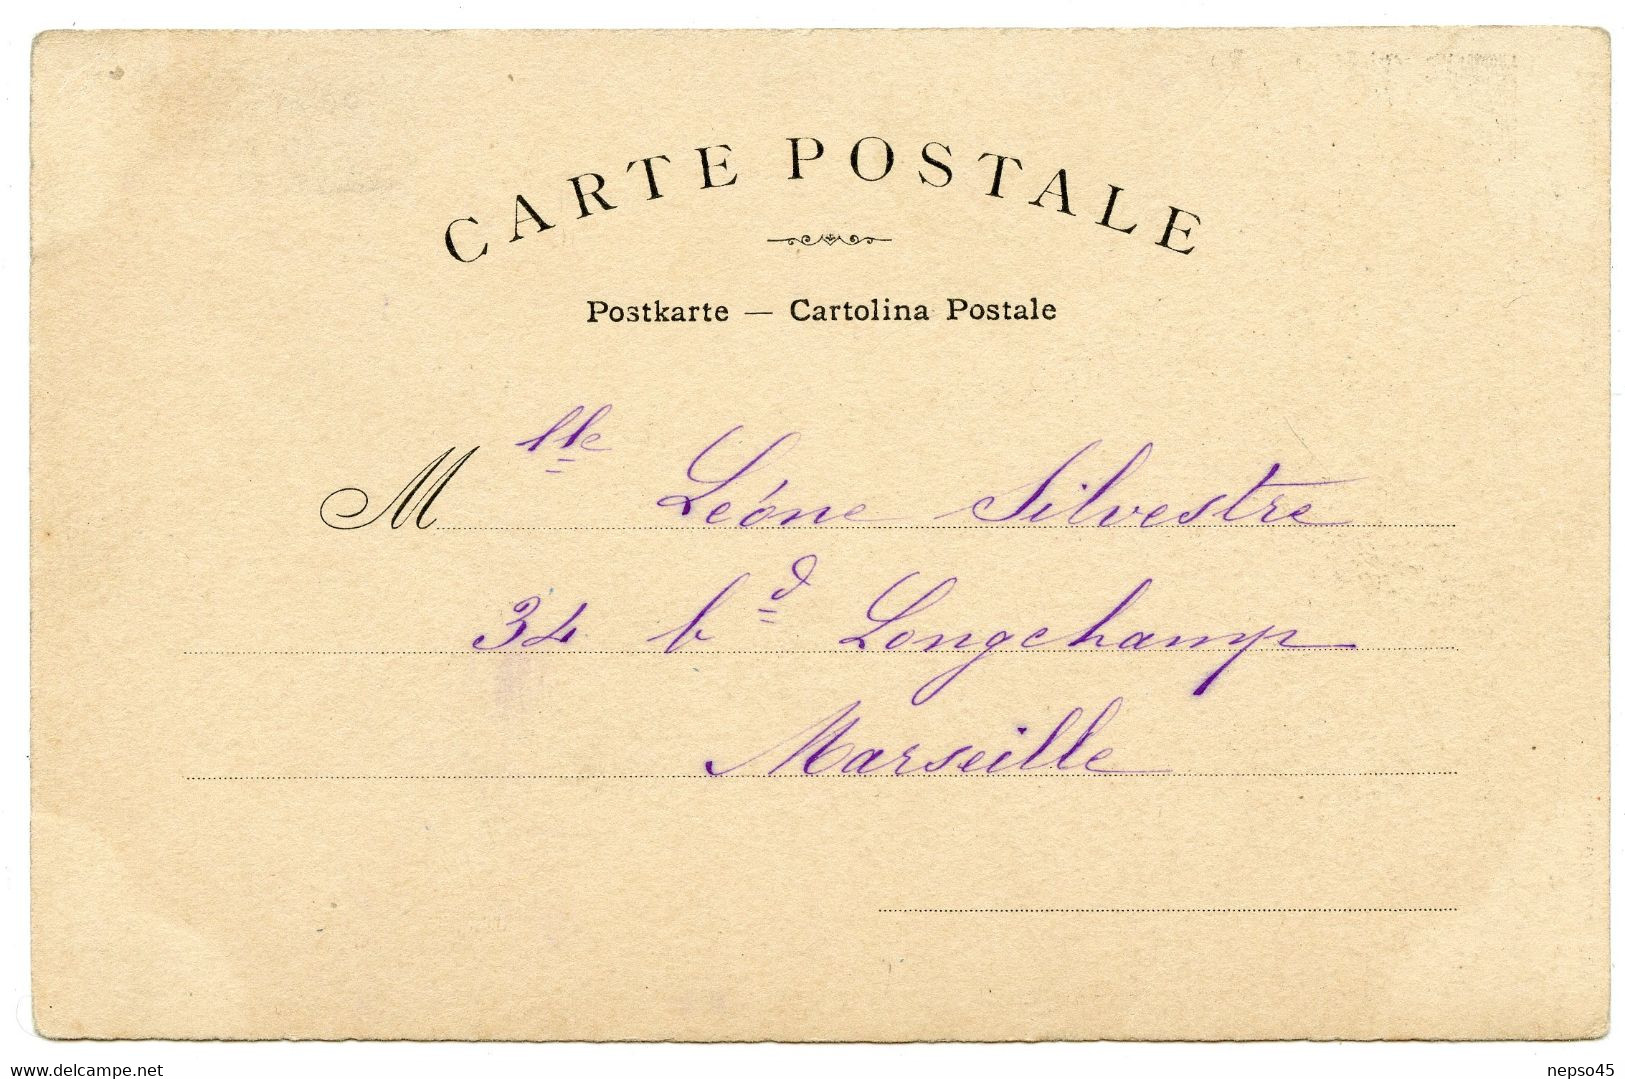 CARTE POSTALE
Postkarte — Cartolina Postale
Mlle Léone Silvestre
34 bd Longchamp
Marseille
www.delcampe.net
nepso45